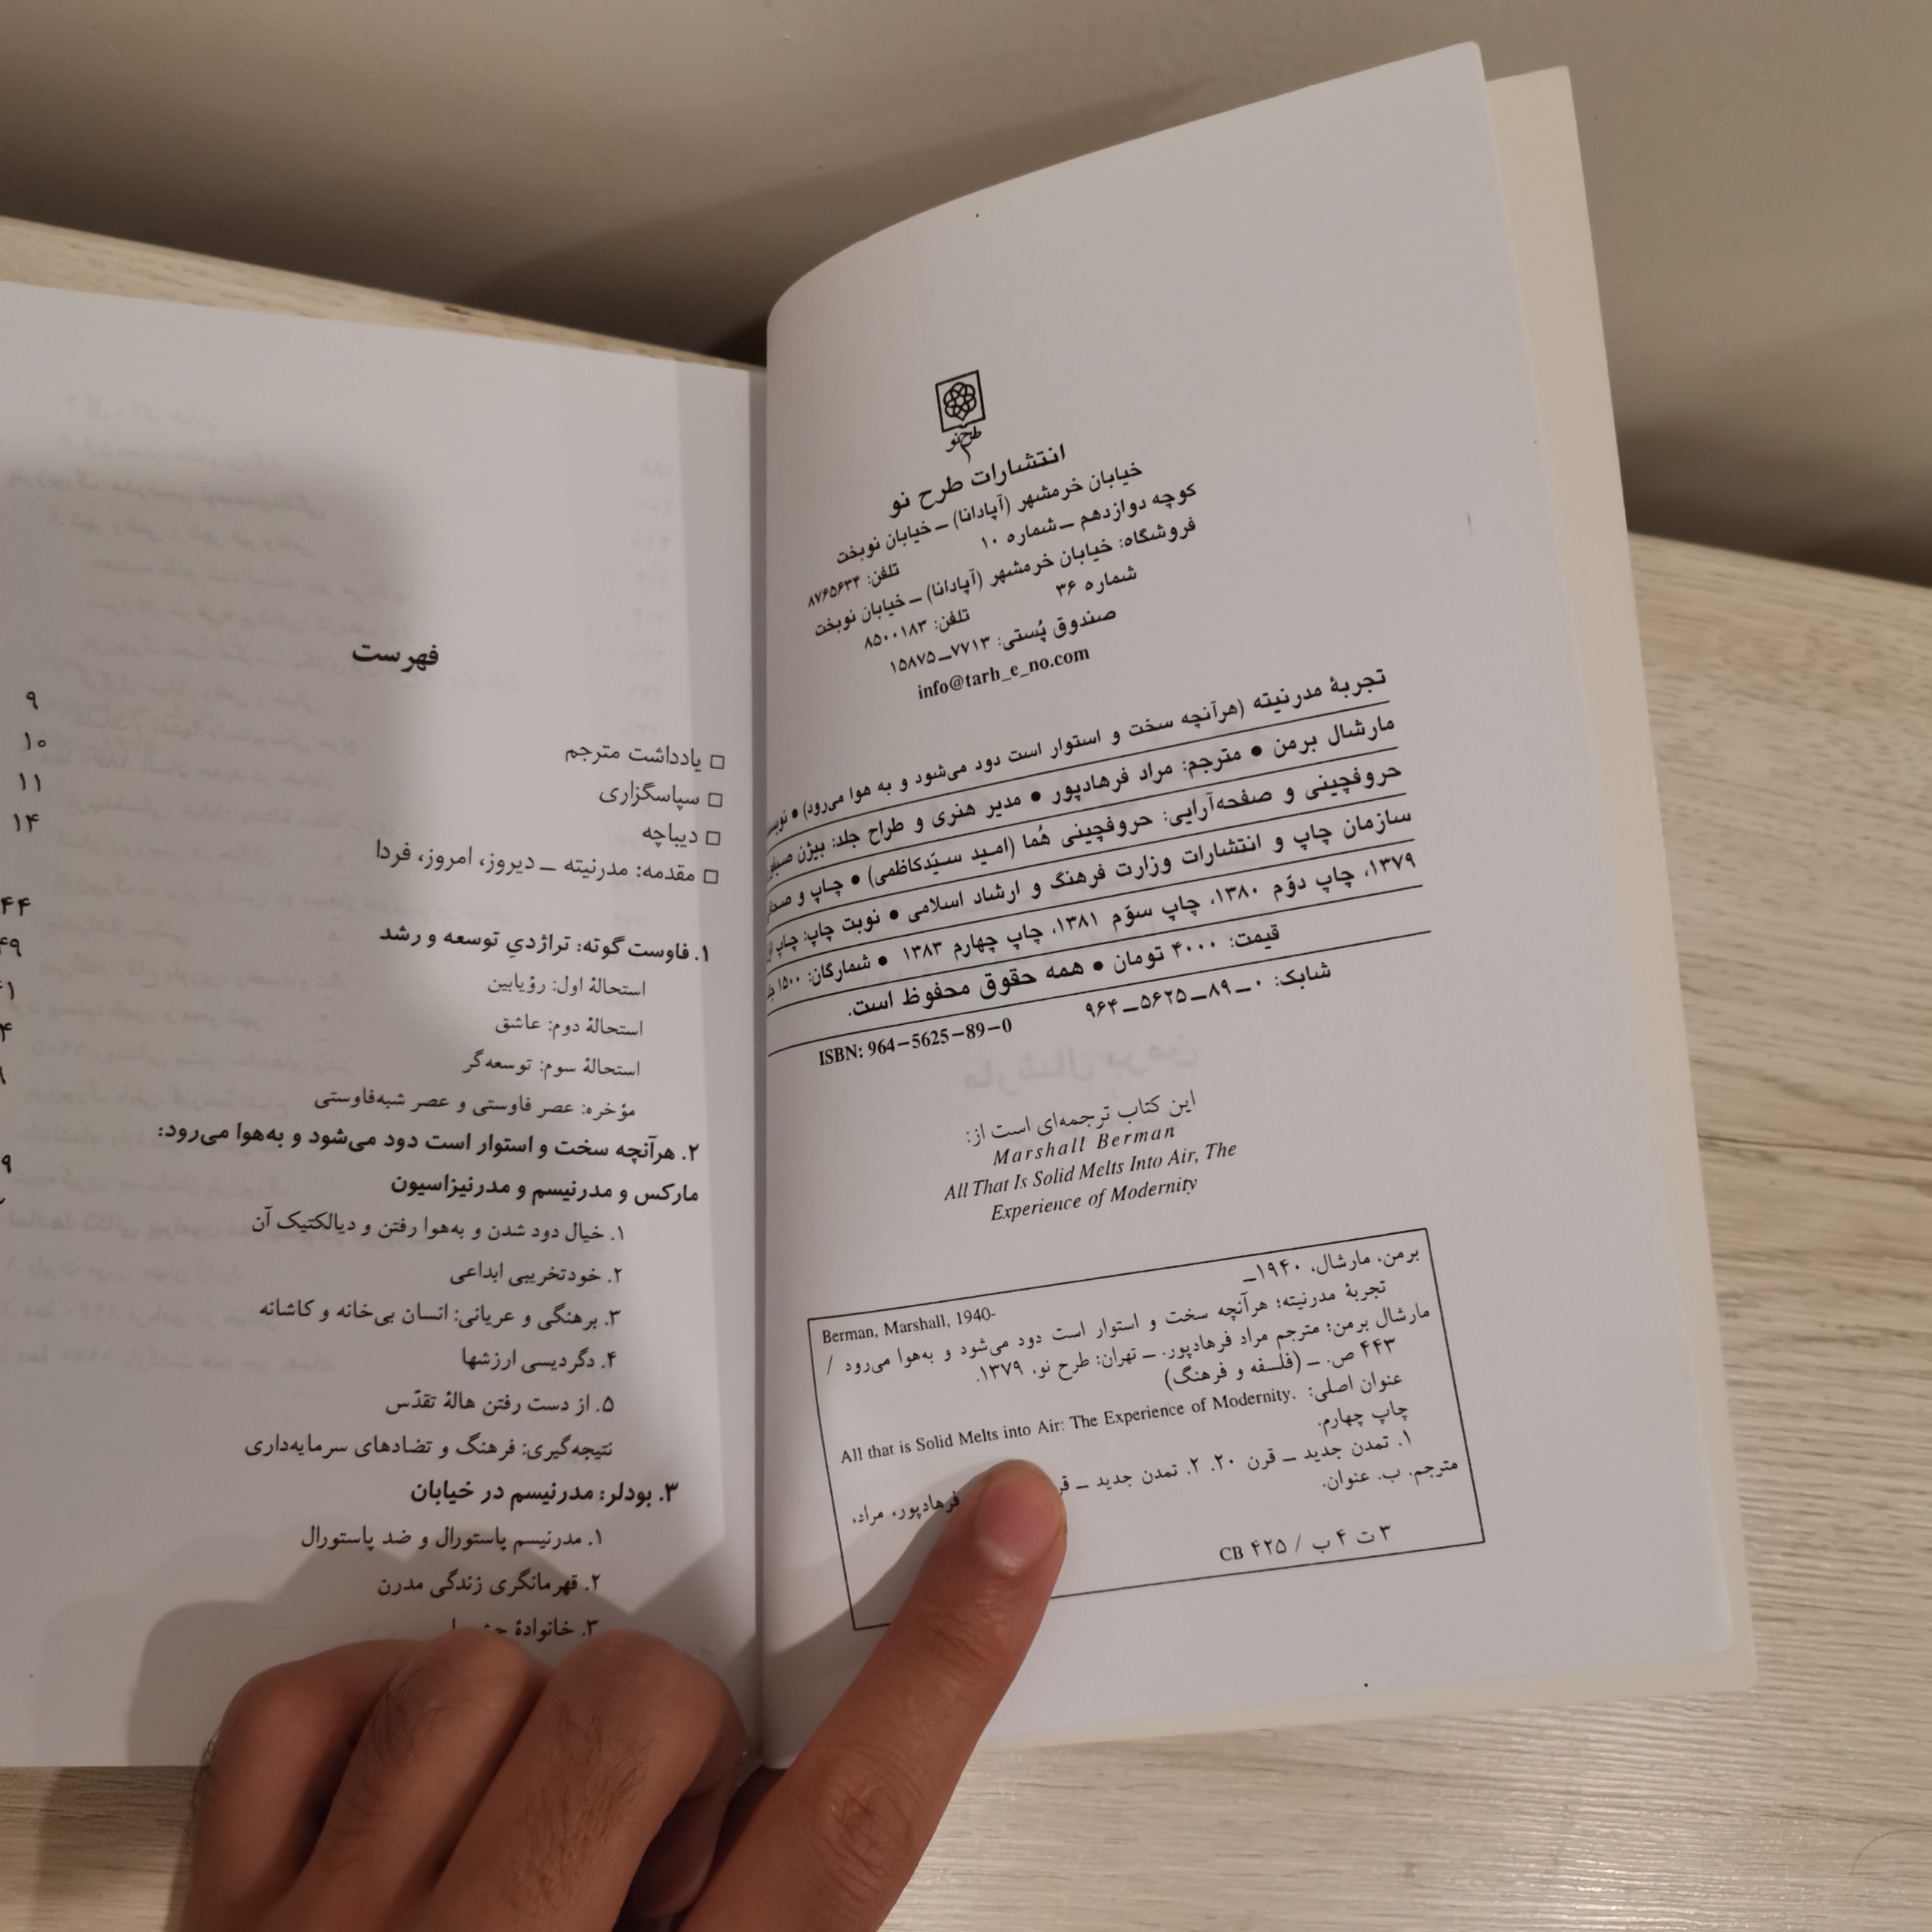 طرح نو
انتشارات طرح نو
خیابان خرمشهر (آپادانا) ــ خیابان نوبخت
کوچه دوازدهم ــ شماره ۱۰
تلفن: ۸۷۶۵۶۳۴
فروشگاه: خیابان خرمشهر (آپادانا) ــ خیابان نوبخت
شماره ۳۶
تلفن: ۸۵۰۰۱۸۳
صندوق پُستی: ۷۷۱۳ــ۱۵۸۷۵
info@tarh_e_no.com
تجربهٔ مدرنیته (هرآنچه سخت و استوار است دود می‌شود و به هوا می‌رود) ●
مارشال برمن ● مترجم: مراد فرهادپور ● مدیر هنری و طراح جلد: بیژن
حروفچینی و صفحه‌آرایی: حروفچینی هُما (امید سیّدکاظمی) ● چاپ و
سازمان چاپ و انتشارات وزارت فرهنگ و ارشاد اسلامی ● نوبت چاپ: چاپ
۱۳۷۹، چاپ دوّم ۱۳۸۰، چاپ سوّم ۱۳۸۱، چاپ چهارم ۱۳۸۳ ● شمارگان: ۱۵۰۰
قیمت: ۴۰۰۰ تومان ● همه حقوق محفوظ است.
شابک: ۰ــ۸۹ــ۵۶۲۵ــ۹۶۴
ISBN: 964–5625–89–0
این کتاب ترجمه‌ای است از:
Marshall Berman
All That Is Solid Melts Into Air, The
Experience of Modernity
برمن، مارشال، ۱۹۴۰ــ
Berman, Marshall, 1940-
تجربهٔ مدرنیته؛ هرآنچه سخت و استوار است دود می‌شود و به‌هوا می‌رود /
مارشال برمن؛ مترجم مراد فرهادپور. ــ تهران: طرح نو، ۱۳۷۹.
۴۴۳ ص. ــ (فلسفه و فرهنگ)
عنوان اصلی: All that is Solid Melts into Air: The Experience of Modernity.
چاپ چهارم.
۱. تمدن جدید ــ قرن ۲۰. ۲. تمدن جدید ــ فرهادپور، مراد،
مترجم. ب. عنوان.
۳ ت ۴ ب / ۴۲۵ CB
فهرست
□ یادداشت مترجم ۹
□ سپاسگزاری ۱۰
□ دیباچه ۱۱
□ مقدمه: مدرنیته ــ دیروز، امروز، فردا ۱۴
۱. فاوست گوته: تراژدیِ توسعه و رشد ۴۴
استحالهٔ اول: رؤیابین
استحالهٔ دوم: عاشق
استحالهٔ سوم: توسعه‌گر
مؤخره: عصر فاوستی و عصر شبه‌فاوستی
۲. هرآنچه سخت و استوار است دود می‌شود و به‌هوا می‌رود:
مارکس و مدرنیسم و مدرنیزاسیون
۱. خیال دود شدن و به‌هوا رفتن و دیالکتیک آن
۲. خودتخریبی ابداعی
۳. برهنگی و عریانی: انسان بی‌خانه و کاشانه
۴. دگردیسی ارزشها
۵. از دست رفتن هالهٔ تقدّس
نتیجه‌گیری: فرهنگ و تضادهای سرمایه‌داری
۳. بودلر: مدرنیسم در خیابان
۱. مدرنیسم پاستورال و ضد پاستورال
۲. قهرمانگری زندگی مدرن
۳. خانوادهٔ